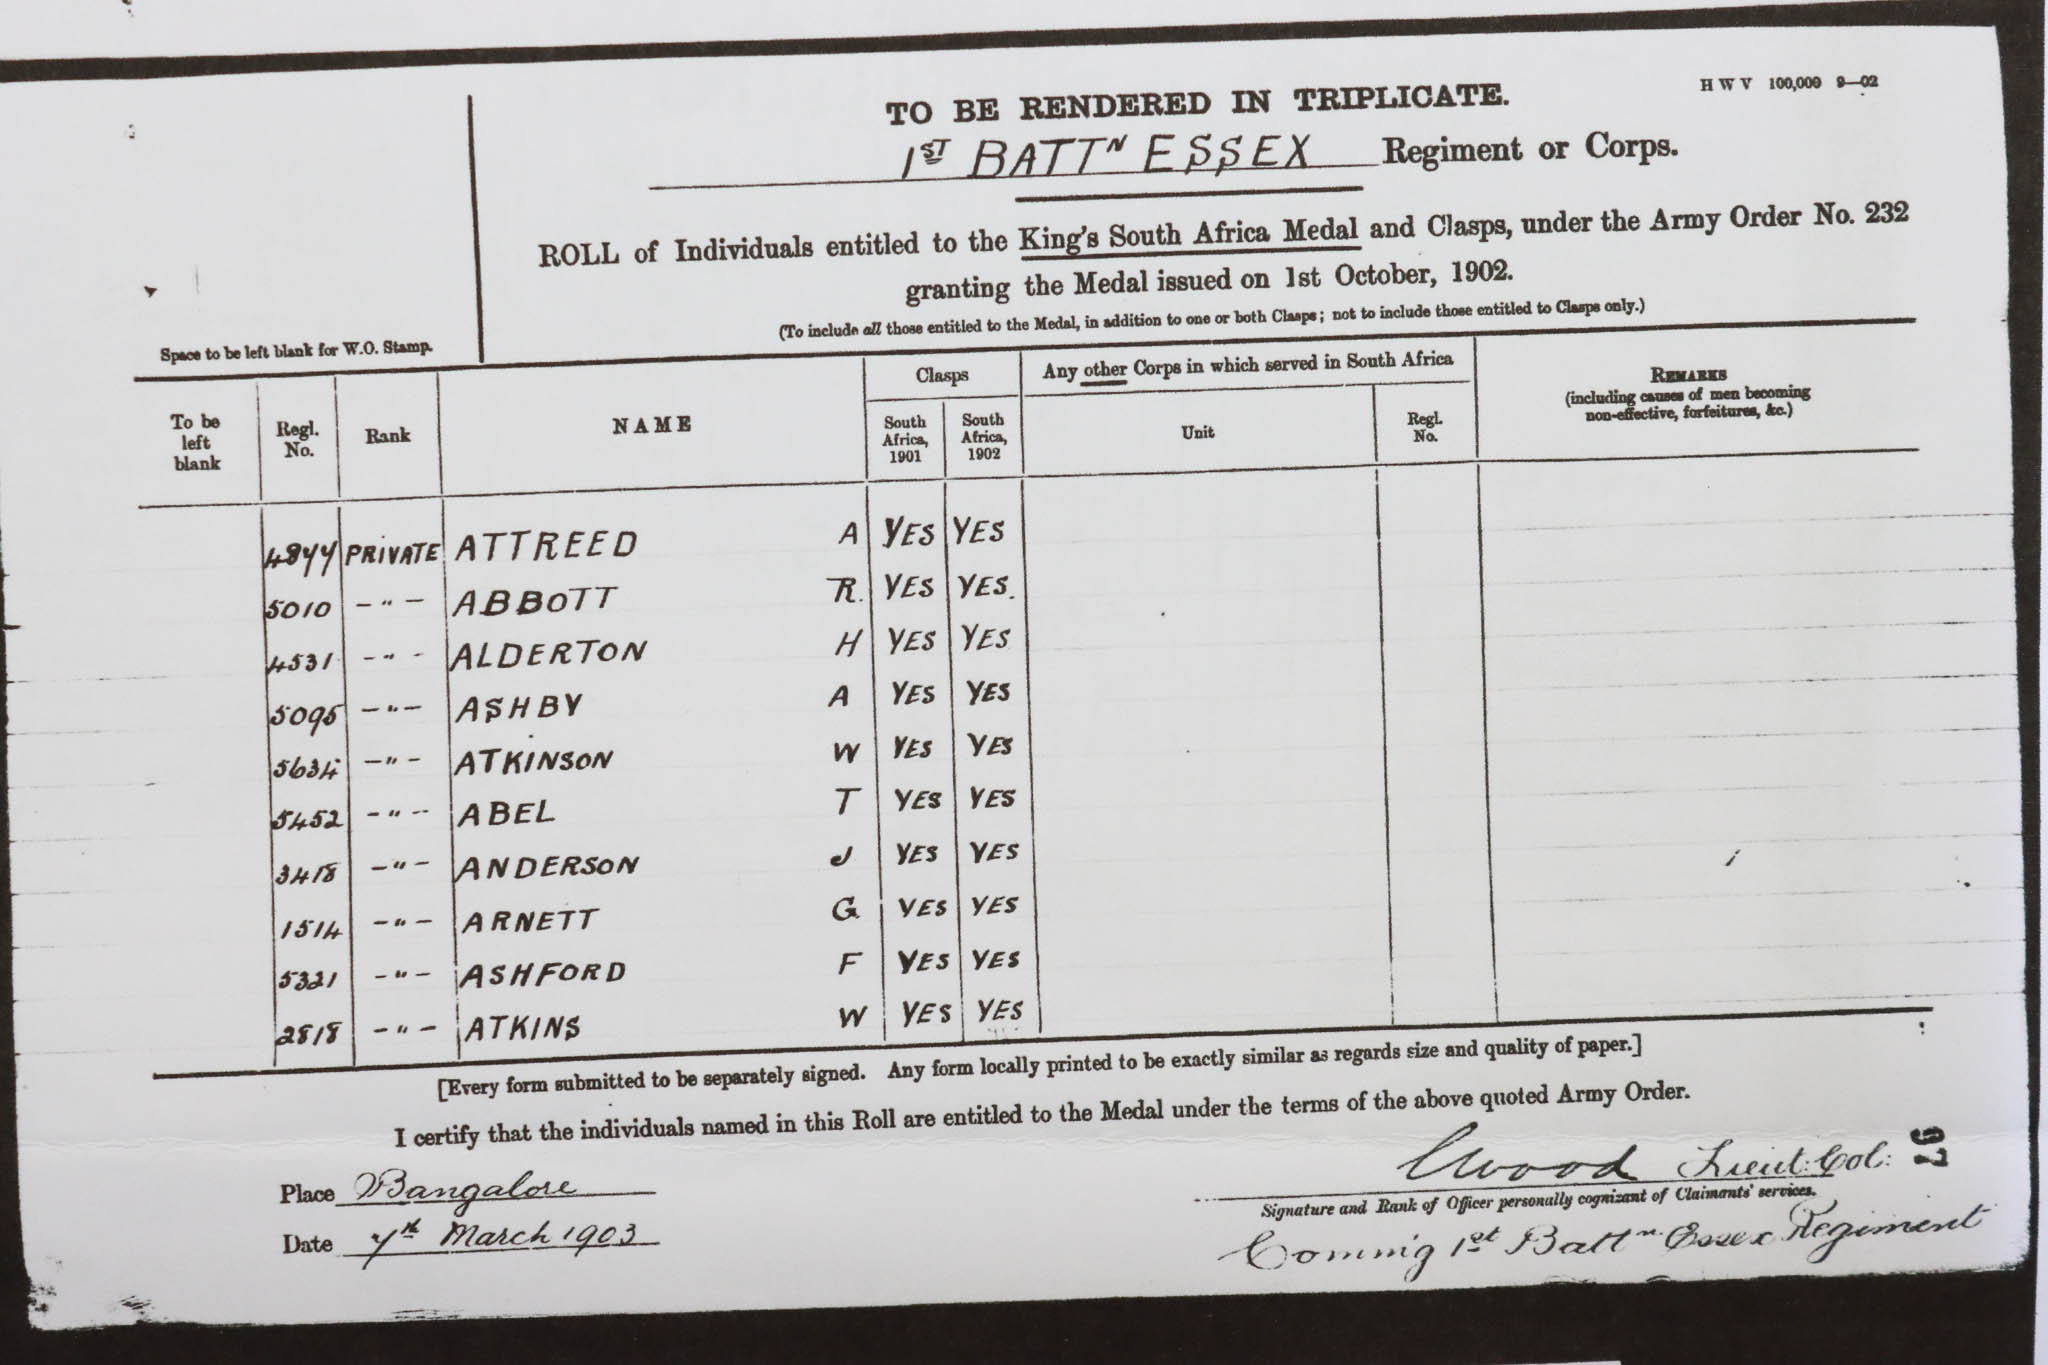 H W V 100,000 9—02
TO BE RENDERED IN TRIPLICATE.
1ST BATTN ESSEX Regiment or Corps.
ROLL of Individuals entitled to the King's South Africa Medal and Clasps, under the Army Order No. 232
granting the Medal issued on 1st October, 1902.
(To include all those entitled to the Medal, in addition to one or both Clasps; not to include those entitled to Clasps only.)
Space to be left blank for W.O. Stamp.
To be left blank Regl. No. Rank NAME Clasps South Africa, 1901 South Africa, 1902 Any other Corps in which served in South Africa Unit Regl. No. REMARKS (including causes of men becoming non-effective, forfeitures, &c.)
4877 PRIVATE ATTREED A YES YES
5010 -"- ABBOTT R. YES YES.
4531 -"- ALDERTON H YES YES
5095 -"- ASHBY A YES YES
5634 -"- ATKINSON W YES YES
5452 -"- ABEL T YES YES
3418 -"- ANDERSON J YES YES
1514 -"- ARNETT G. YES YES
5321 -"- ASHFORD F YES YES
2818 -"- ATKINS W YES YES
[Every form submitted to be separately signed. Any form locally printed to be exactly similar as regards size and quality of paper.]
I certify that the individuals named in this Roll are entitled to the Medal under the terms of the above quoted Army Order.
Place Bangalore
Date 7th March 1903
Wood Lieut: Col:
Signature and Rank of Officer personally cognizant of Claimants' services.
Comm'g 1st Battn Essex Regiment
97